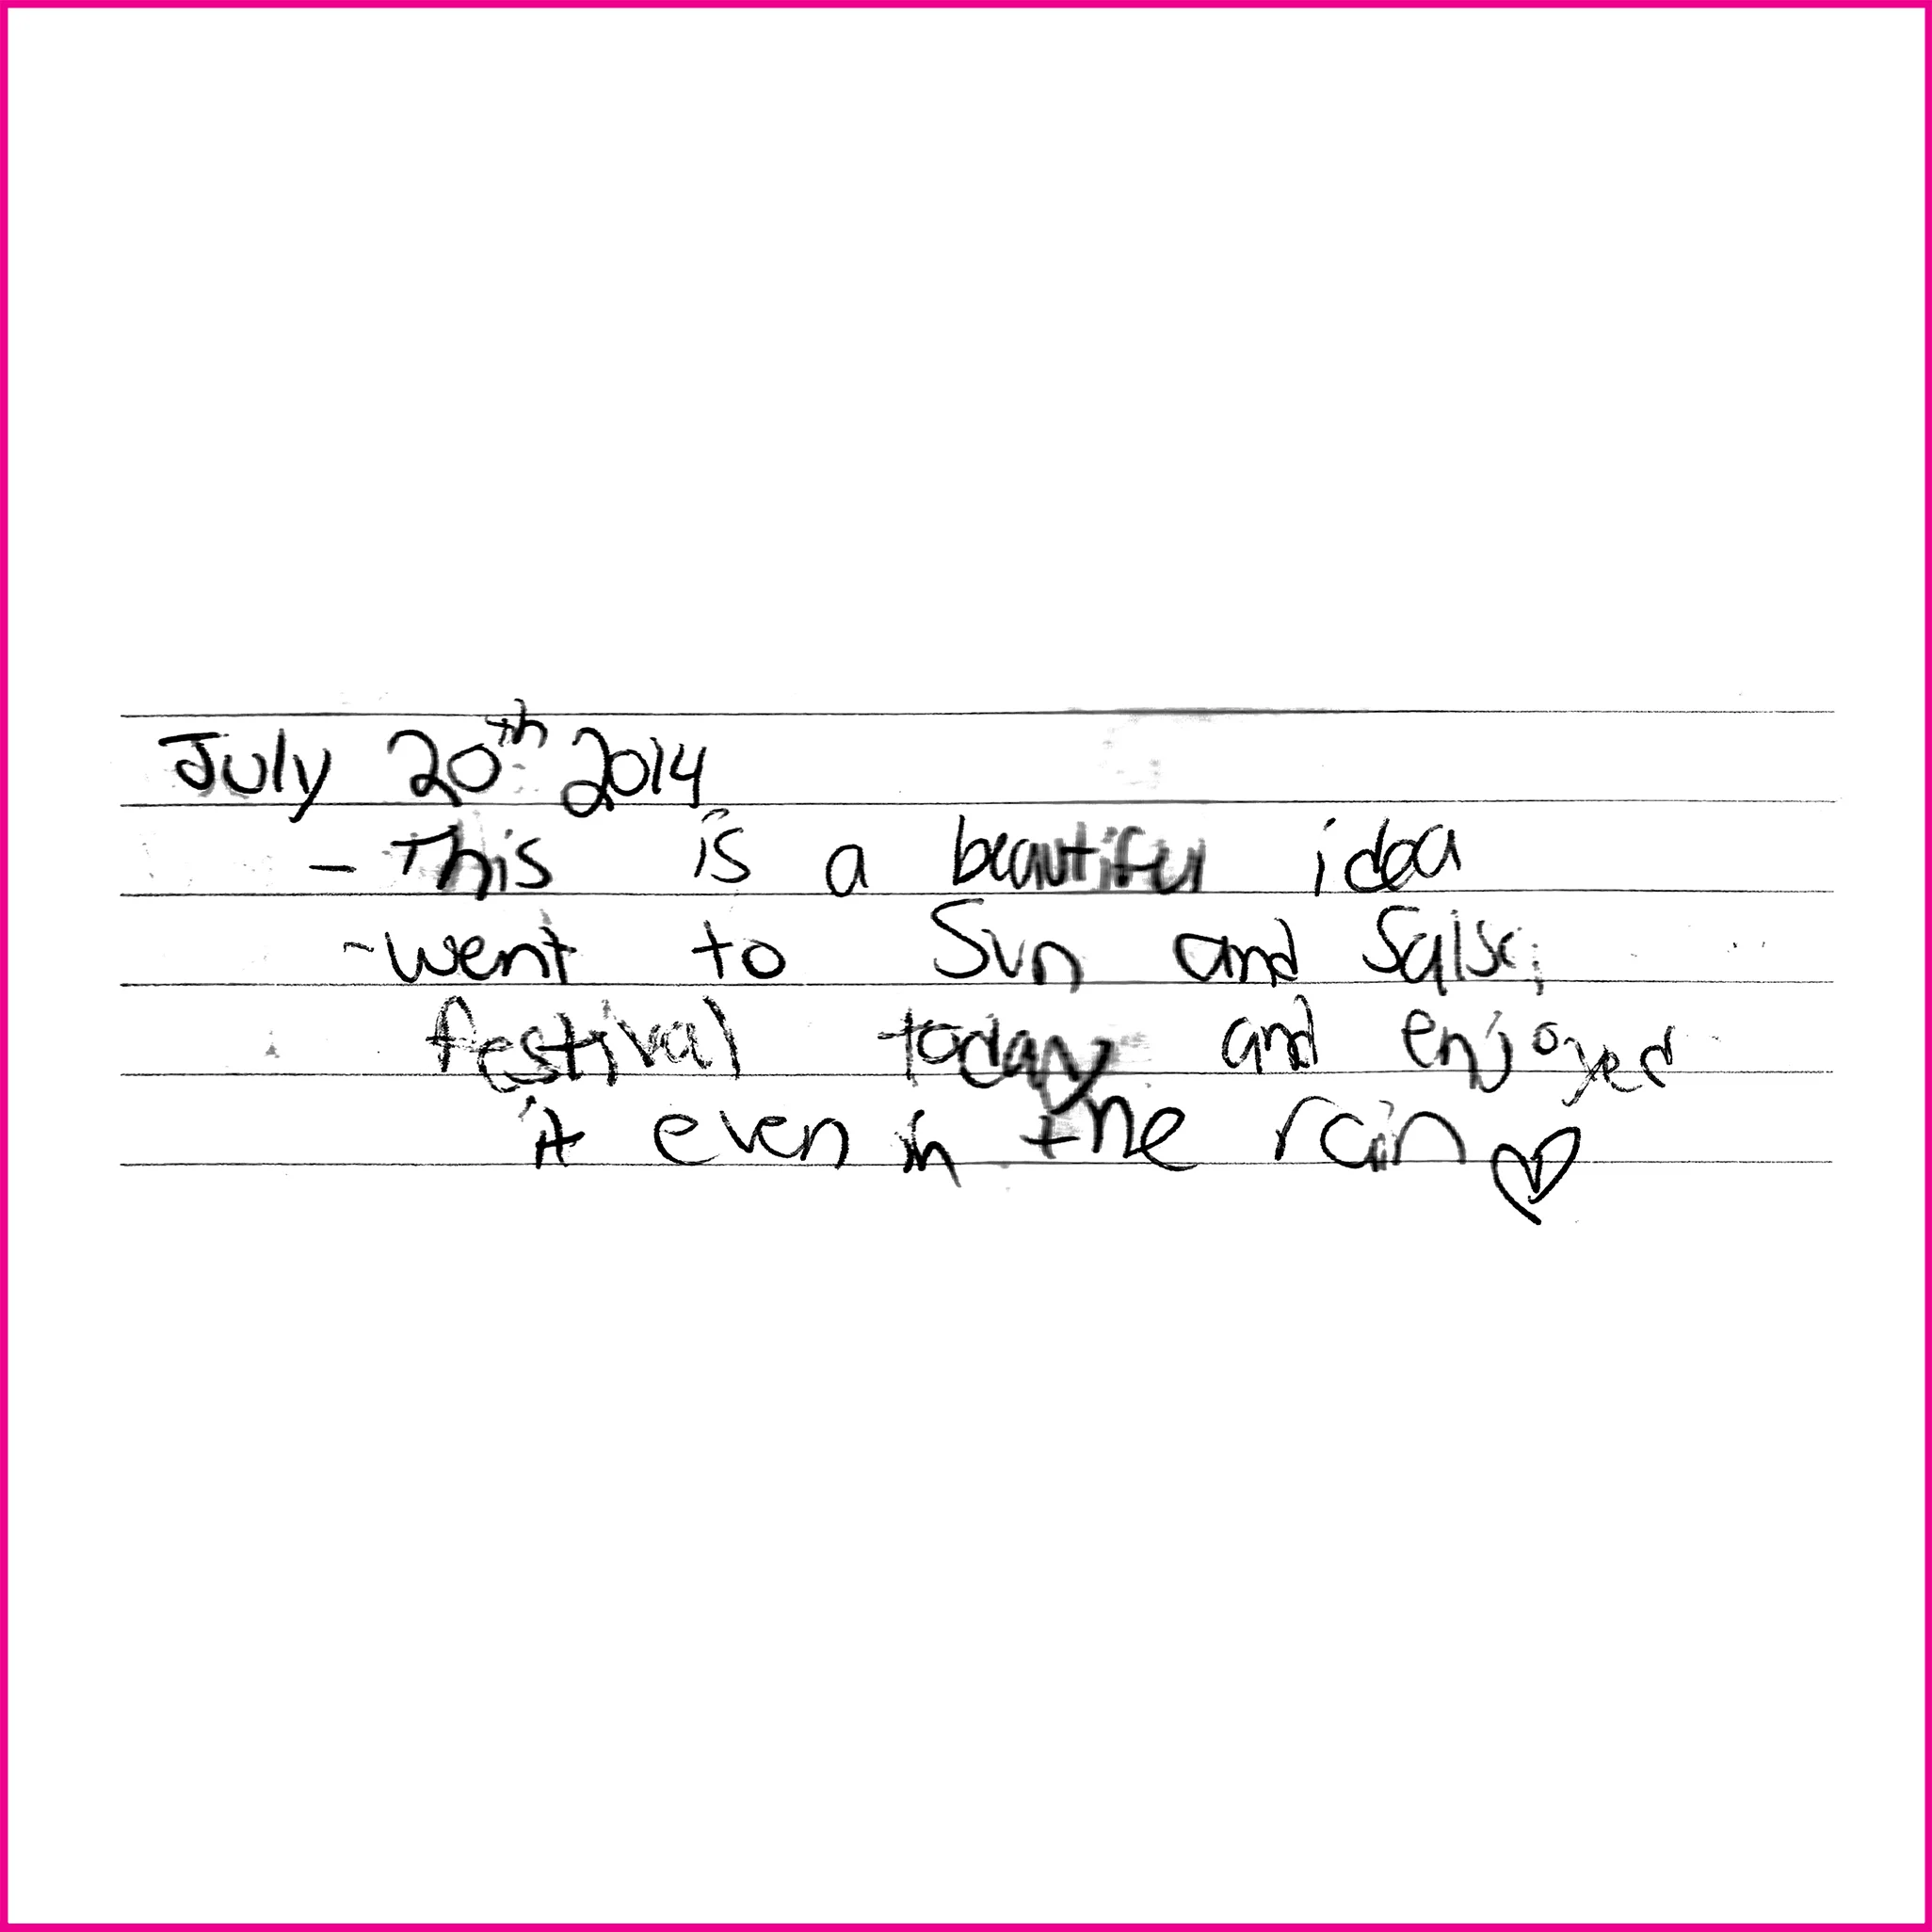 July 20th 2014
- This is a beautiful idea
- went to Sun and Salsa
festival today and enjoyed
it even in the rain ♡